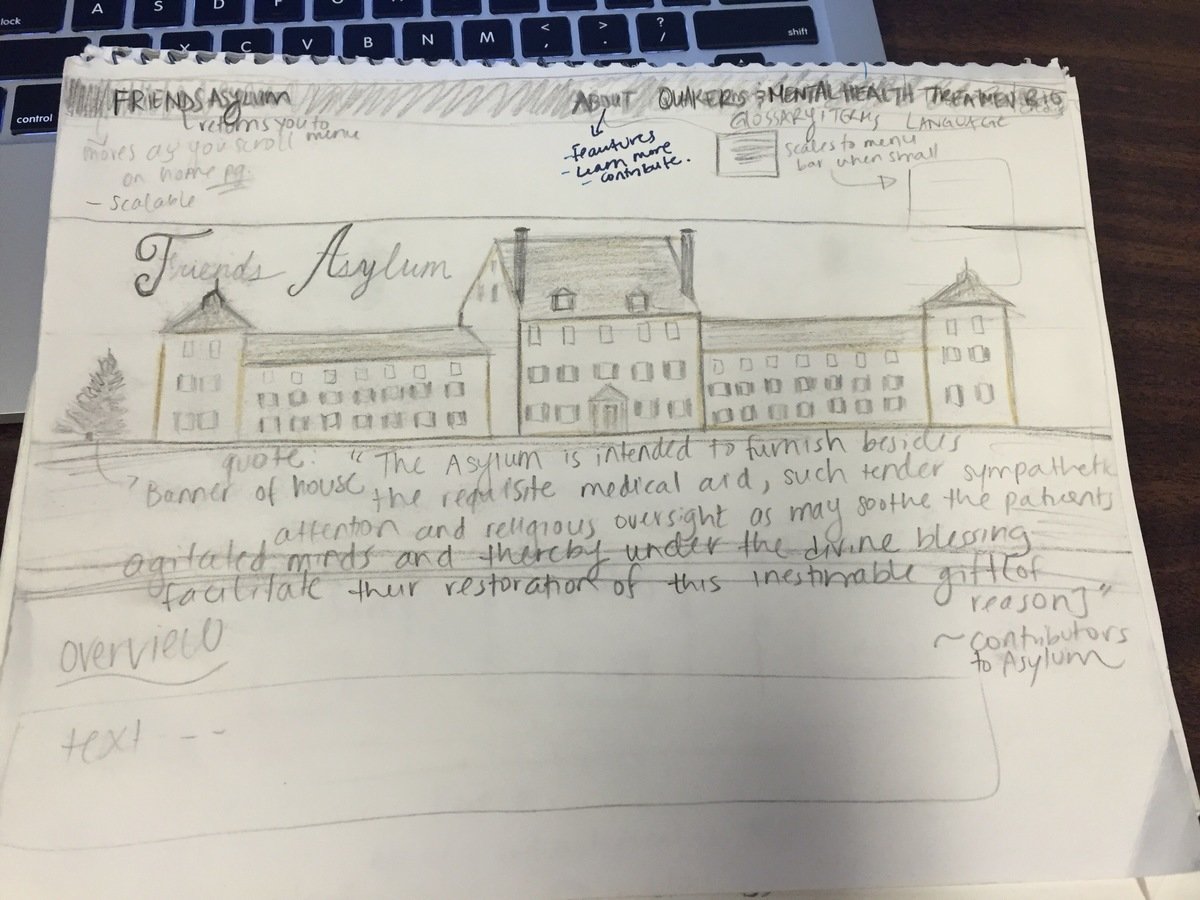 lock
A
S
D
F
G
H
J
K
L
X
C
V
B
N
M
< ,
> .
? /
shift
control
FRIENDS ASYLUM
ABOUT QUAKERS & MENTAL HEALTH TREATMEN
GLOSSARY TERMS LANGUAGE
returns you to
menu
moves as you scroll
on home pg.
- scalable
- Feautures
- Learn more
- contribute.
scales to menu
bar when small
Friends Asylum
quote: "The Asylum is intended to furnish besides
Banner of house
the requisite medical aid, such tender sympathetic
attention and religious oversight as may soothe the patients
agitated minds and thereby under the divine blessing
facilitate their restoration of this inestimable gift [of
reason]"
~ contributors
to Asylum
overview
text - -